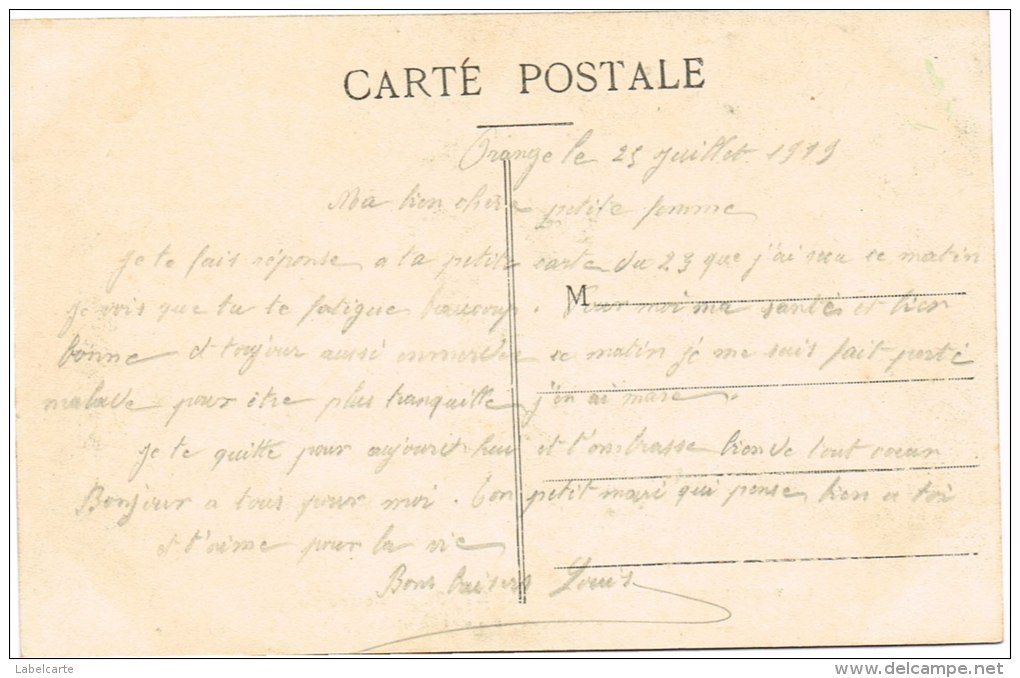 CARTE POSTALE
Orange le 25 Juillet 1919
Ma bien chère petite femme
Je te fais réponse a ta petite carte du 23 que j'ai reçu ce matin
M
Je vois que tu te fatigue beaucoup. Pour moi ma santé est bien
bonne et toujour aussi emmerdée ce matin je me suis fait porté
malade pour être plus tranquille j'en ai mare.
Je te quitte pour aujourd hui et t'embrasse bien de tout coeur
Bonjour a tous pour moi. Ton petit mari qui pense bien a toi
et t'aime pour la vie
Bons baisers Louis
Labelcarte
www.delcampe.net